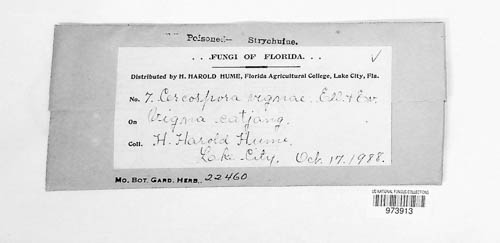 Poisoned— Strychnine.
. . .FUNGI OF FLORIDA. . .
Distributed by H. HAROLD HUME, Florida Agricultural College, Lake City, Fla.
No. 7. Cercospora vignae. Ell. & Ev.
On Vigna catjang.
Coll. H. Harold Hume.
Lake City. Oct. 17. 1988.
MO. BOT. GARD. HERB. 22460
US NATIONAL FUNGUS COLLECTIONS
973913